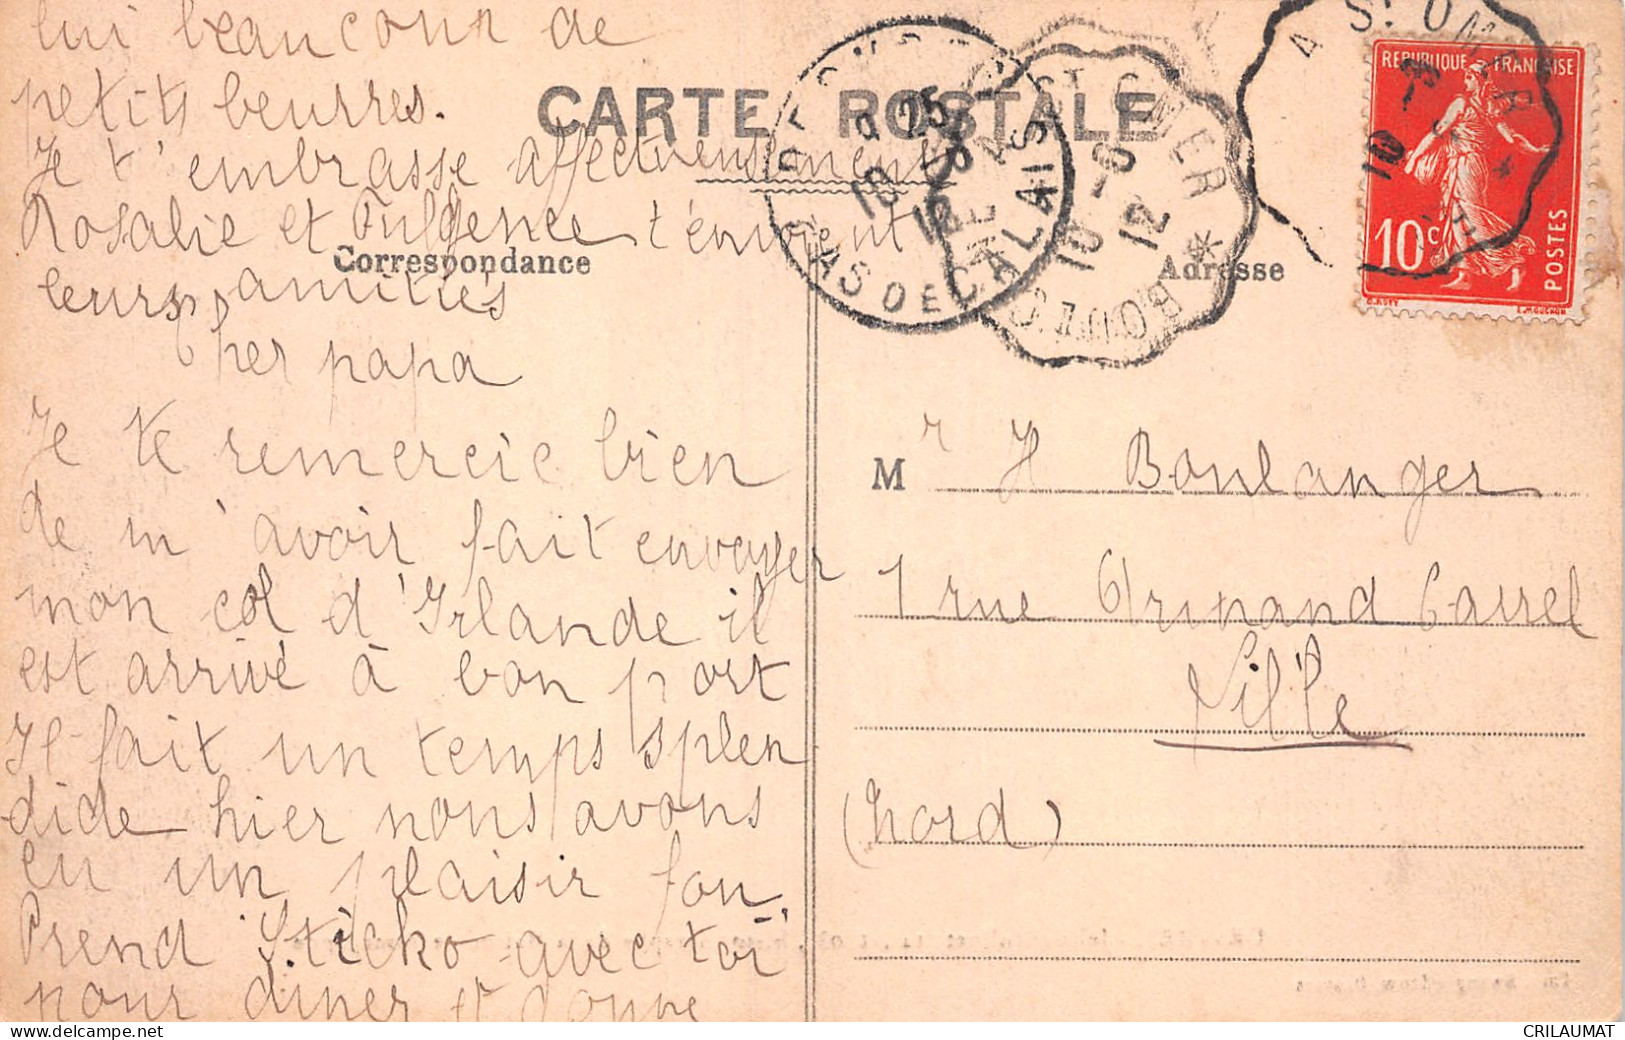 lui beaucoup de
petits beurres.
Je t'embrasse affectueusement
Rosalie et Fulgence t'envoient
leurs amitiés
CARTE POSTALE
Correspondance
Adresse
Cher papa
Je te remercie bien
de m'avoir fait envoyer
mon col d'Irlande il
est arrivé à bon port
Il fait un temps splen
dide hier nous avons
eu un plaisir fou.
Prend Sticko avec toi
pour diner et donne
Mr H Boulanger
1 rue Armand Carrel
Lille
(Nord)
REPUBLIQUE FRANÇAISE
10c
POSTES
E.MOUCHON
PAS DE CALAIS
10 -8
12
A ST OMER
BOUL
10 -8
12
A ST OMER
10 -8
CRILAUMAT